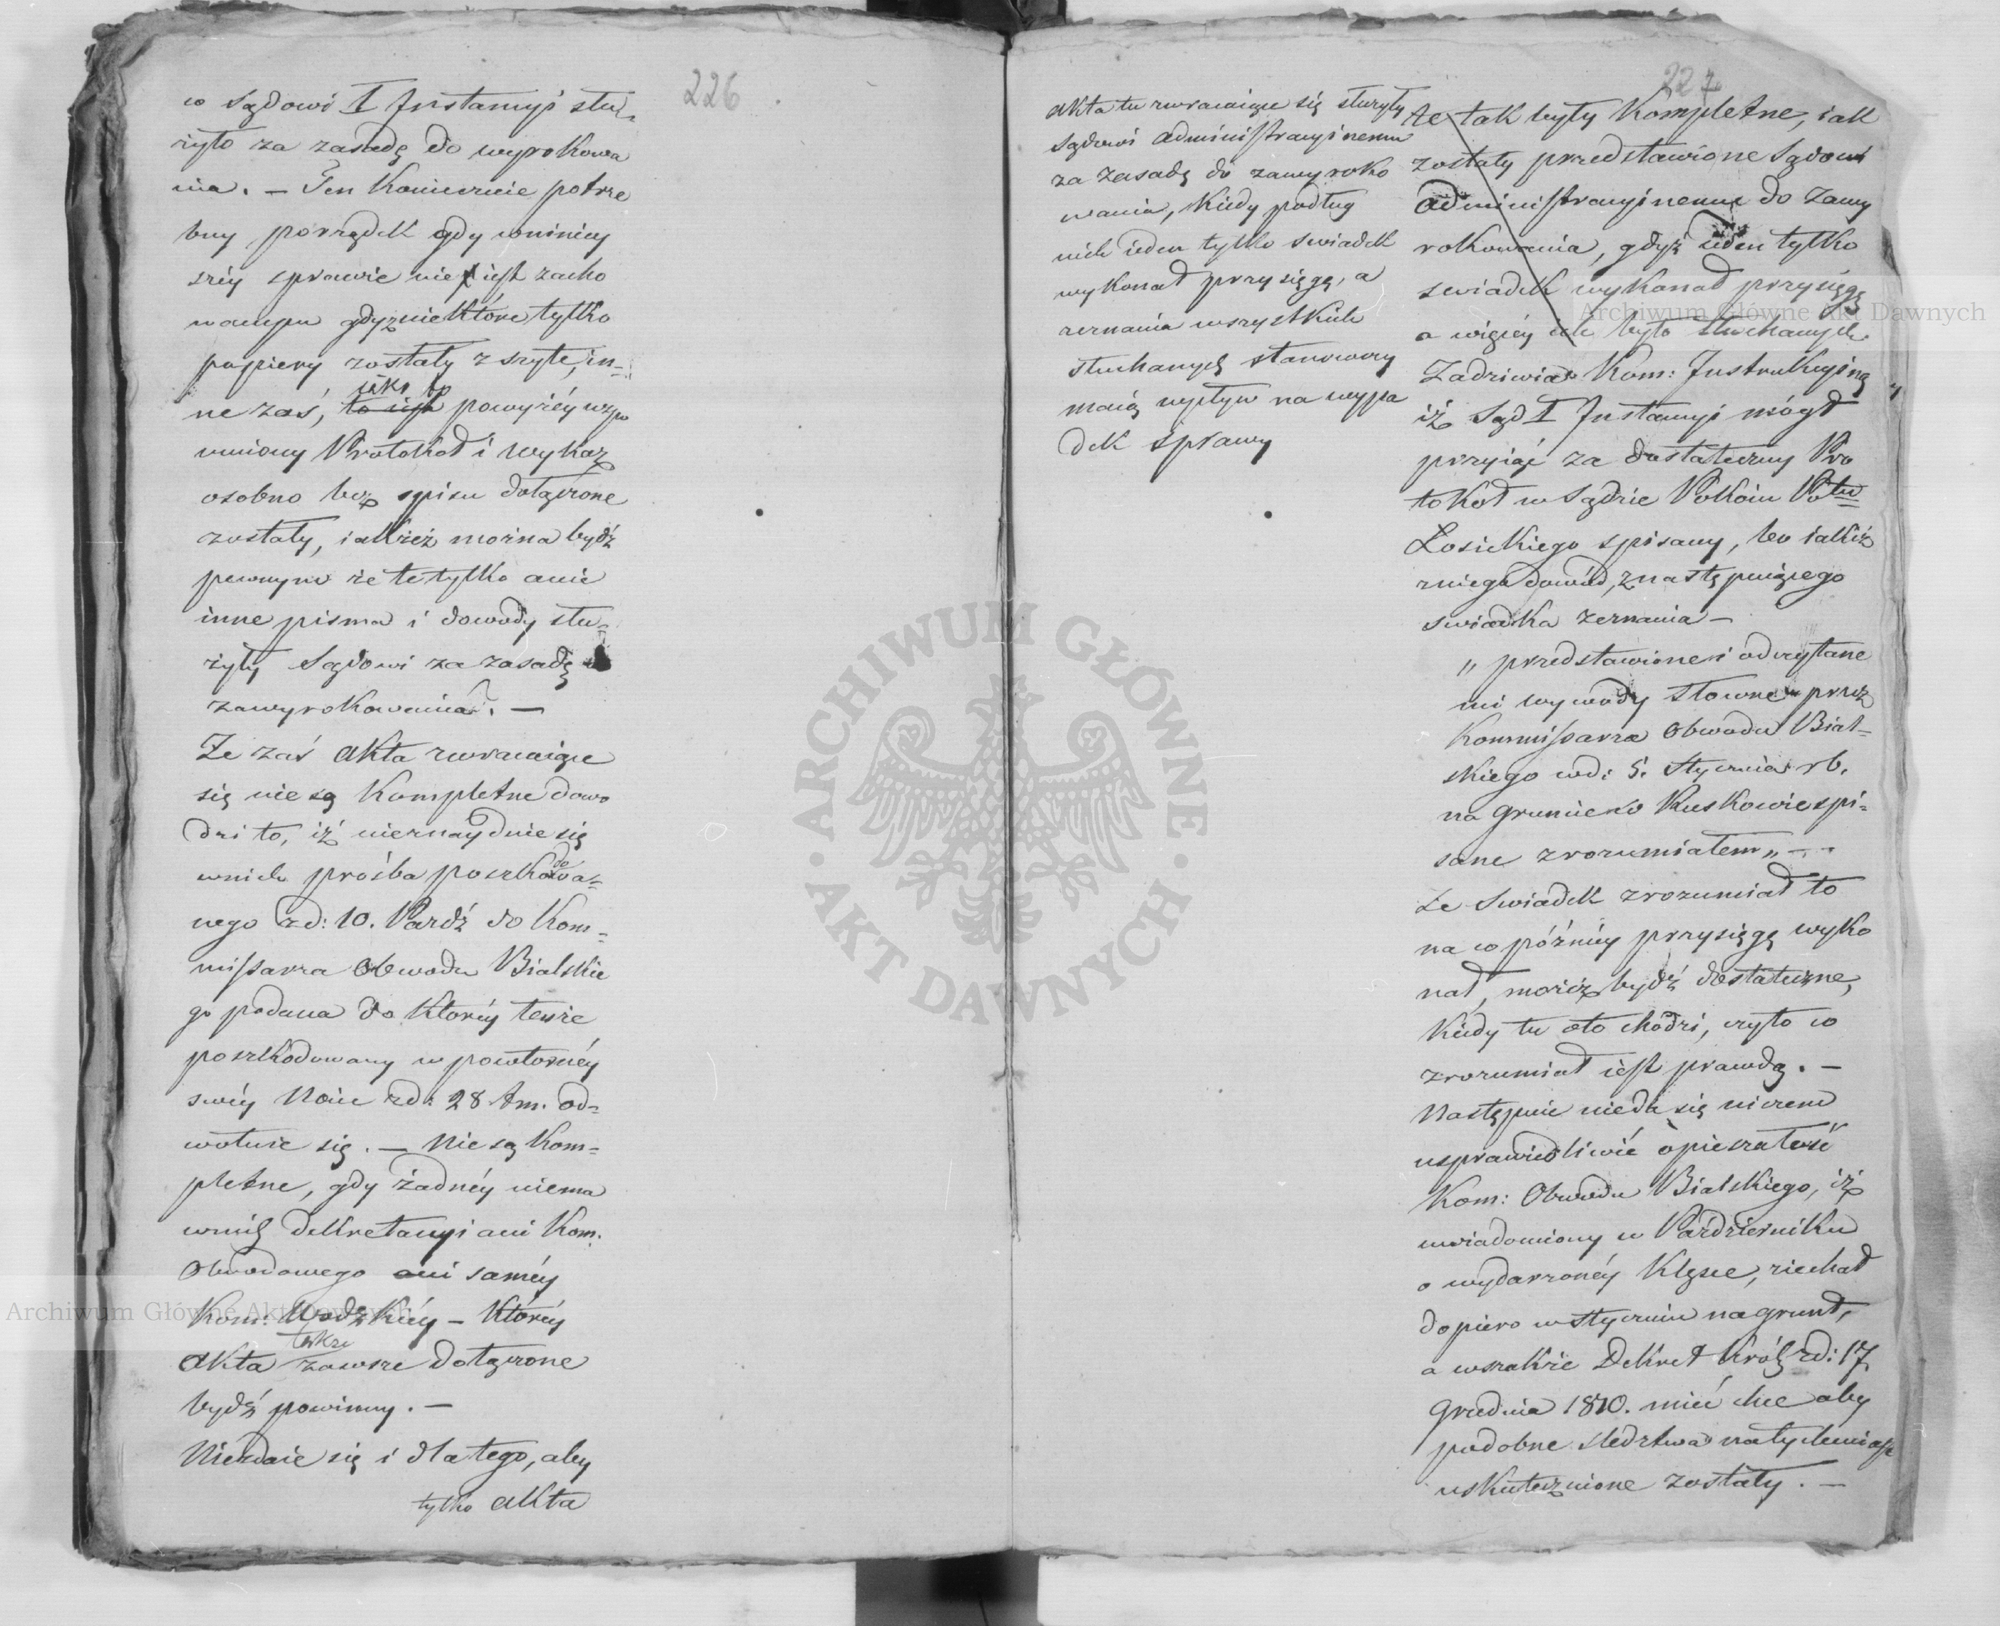 226
co Sądowi I Instancyi słu-
żyło za zasadę do wyrokowa
nia. — Ten koniecznie potrze
bny porządek gdy wniniey
széy sprawie nie iest zacho
wanym gdyż niektóre tylko
papiery zostały zszyte, in-
ne zaś, to iest iako to powyżéy wspo
mniony Protokół i wykaz
osobno bez spisu dołączone
zostały, iakżeż można bydź
pewnym że te tylko a nie
inne pisma i dowody słu-
żyły Sądowi za zasadę
zawyrokowania?. —
Że zaś Akta zwracaiące
się nie są kompletne dowo
dzi to, iż nieznayduie się
wnich prośba poszkodowa-
nego zd: 10. Paźdź do Kom-
missarza Obwodu Bialskie
go podana do któréy tenże
poszkodowany w powtórnéy
swéy Nocie zd: 28 t.m. od-
wołuie się. — Nie są kom-
pletne, gdy żadnéy niema
wnich dekretacyi ani Kom.
Obwodowego ani saméy
Kom: Wodzkiéy — któréy
Akta także zawsze dołączone
bydź powinny. —
Niezdaie się i dla tego, aby
tylko Akta
227
Akta tu zwracaiące się służyły
Sądowi Administracyinemu
za zasadę do zawyroko
wania, kiedy podług
nich ieden tylko swiadek
wykonał przysięgę, a
zeznania wszystkich
słuchanych stanowczy
maią wpływ na wypa
dek sprawy
te tak były kompletne, iak
zostały przedstawione Sądowi
Administracyinemu do zawy
rokowania, gdyż ieden tylko
swiadek wykonał przysięgę
a więcéy ich było słuchanych
Zadziwia Kom: Instrukcyiną
iż Sąd I Instancyi mógł
przyiąć za dostateczny Pro
tokół w Sądzie Pokoiu Ptu
Łosickiego spisany, bo iakiż
zniego dowód, z następuiącego
swiadka zeznania —
„ przedstawione i odczytane
mi wywody słowne przez
Kommissarza Obwodu Bial-
skiego wd: 5. Stycznia rb.
na gruncie w Ruskowie spi-
sane zrozumiałem „ — -
Że swiadek zrozumiał to
na co późniéy przysięgę wyko
nał, możeż bydź dostateczne,
kiedy tu oto chodzi, czy to co
zrozumiał iest prawdą. —
Następnie nieda się niczem
usprawiedliwić opieszałość
Kom: Obwodu Bialskiego, iż
uwiadomiony w Październiku
o wydarzonéy klęsce, ziechał
dopiero w Styczniu na grunt,
a wszakże Dekret Król: zd: 17
Grudnia 1810. mieć chce aby
podobne śledztwa natychmiast
uskutecznione zostały. —
Archiwum Główne Akt Dawnych
Archiwum Główne Akt Dawnych
· ARCHIWUM GŁÓWNE · AKT DAWNYCH